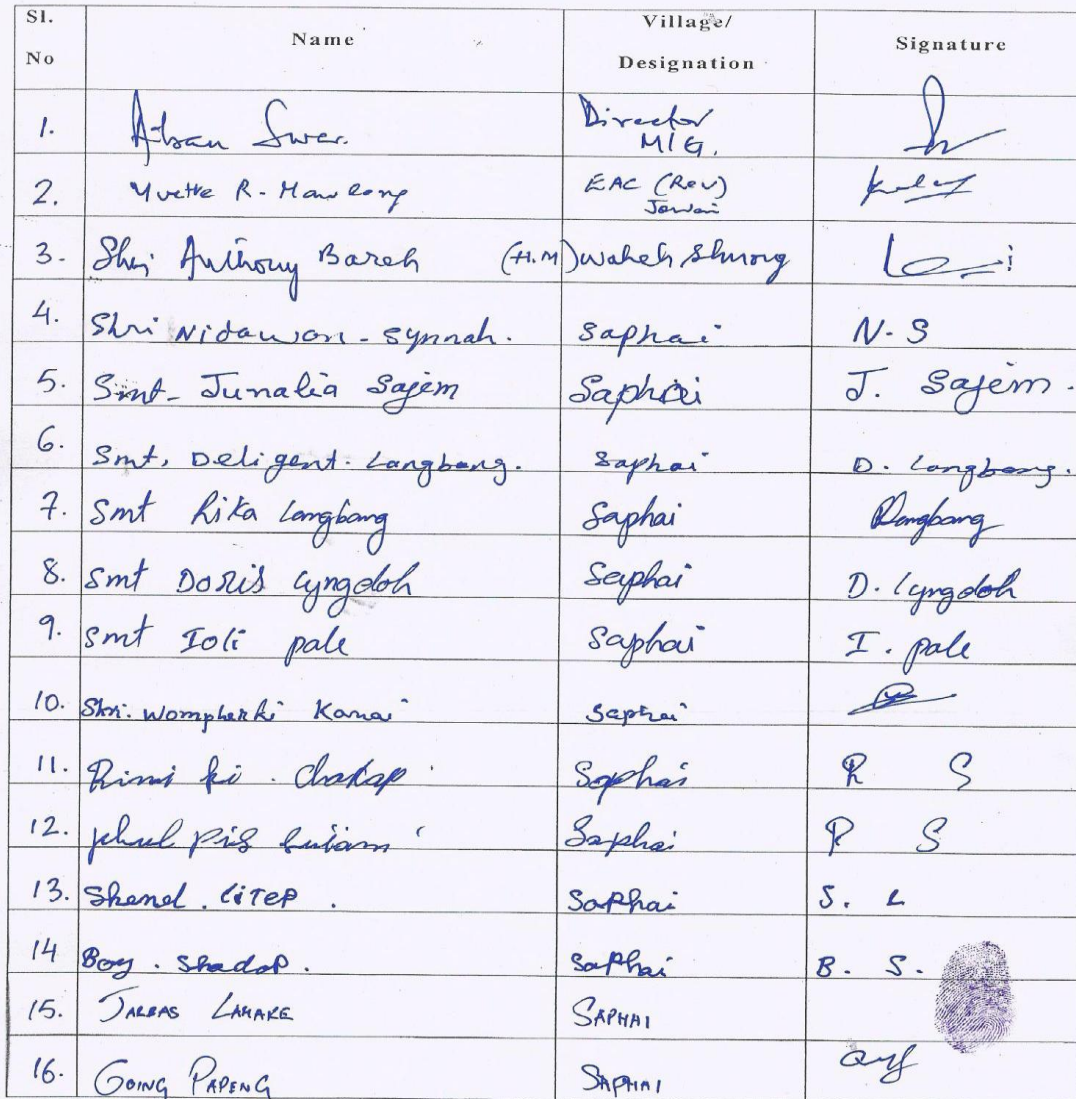 Sl. No Name Village/ Designation Signature
1. Director M/G.
2. Yvette R- Mawlong EAC (Rev) Jowai
3. Shri Anthony Bareh (H.M) Waheh Shnong
4. Shri Nidawon - Synnah. Saphai N. S
5. Smt- Junalia Sajem Saphai J. Sajem.
6. Smt, Deligent. Langbang. Saphai D. Langbang.
7. Smt Rika Langbang Saphai
8. Smt Doris Lyngdoh Saphai D. Lyngdoh
9. Smt Ioli pale Saphai I. pale
10. Shri. Kanai Saphai
11. Rimi ki . Saphai R S
12. Saphai P S
13. Skenel . LiTEP . Saphai S. L
14 Boy . Shadap . Saphai B. S.
15. LAMARE SAPHAI
16. GOING PAPENG SAPHAI